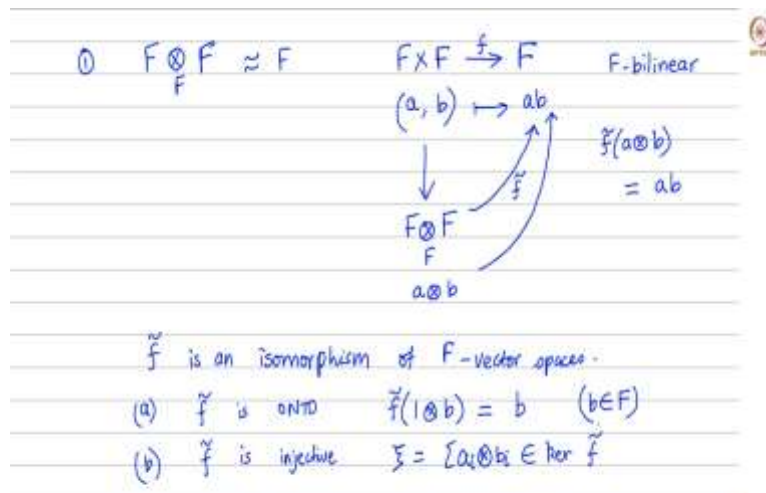 ① F ⊗ F ≈ F F×F →f F F-bilinear
F
(a, b) ↦ ab
f̃(a⊗b)
f̃ = ab
F⊗F
F
a⊗b
f̃ is an isomorphism of F-vector spaces.
(a) f̃ is ONTO f̃(1⊗b) = b (b∈F)
(b) f̃ is injective ξ = Σai⊗bi ∈ ker f̃